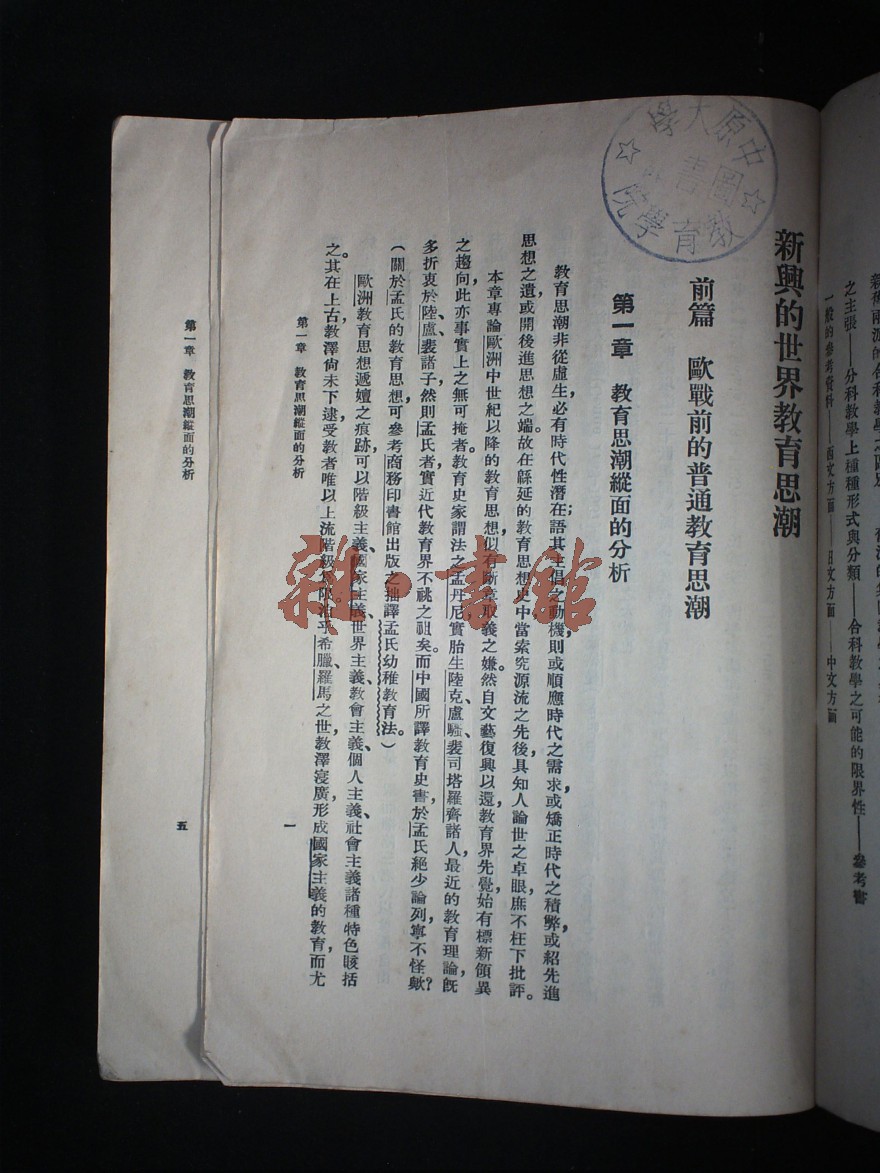 之主張——分科教學上種種形式與分類——合科教學之可能的限界性——參考書
一般的參考資料——西文方面——日文方面——中文方面
新興的世界教育思潮
中原大學
教育學院
圖書
前篇　歐戰前的普通教育思潮
第一章　教育思潮縱面的分析
教育思潮非從虛生，必有時代性潛在；語其主倡之動機，則或順應時代之需求，或矯正時代之積弊，或紹先進
思想之遺，或開後進思想之端。故在緜延的教育思想史中，當索究源流之先後，具知人論世之卓眼，庶不枉下批評。
本章專論歐洲中世紀以降的教育思想，似有斷章取義之嫌。然自文藝復興以還，教育界先覺，始有標新領異
之趨向，此亦事實上之無可掩者。教育史家謂法之孟丹尼，實胎生陸克、盧騷、裴司塔羅齊諸人，最近的教育理論，既
多折衷於陸、盧、裴諸子，然則孟氏者，實近代教育界不祧之祖矣。而中國所譯教育史書，於孟氏絕少論列，寧不怪歟？
（關於孟氏的教育思想，可參考商務印書館出版之拙譯孟氏幼稚教育法。）
歐洲教育思想遞嬗之痕跡，可以階級主義、國家主義、世界主義、教會主義、個人主義、社會主義諸種特色賅括
之。其在上古，教澤尚未下逮，受教者唯以上流階級為限。洎乎希臘、羅馬之世，教澤寖廣，形成國家主義的教育，而尤
第一章　教育思潮縱面的分析
一
第一章　教育思潮縱面的分析
五
雜·書館